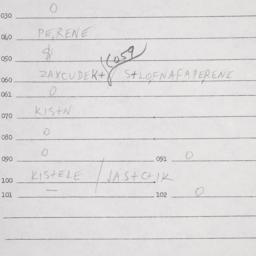 030 0
040 PE,RENE
050 8 1059
060 ZAXCUDEK+ S+LO,FNAFAPERENE
061 0
070 KIS+N
080 0
090 0 091 0
100 KIS+ELE / JAS+C+IK
101 — 102 0